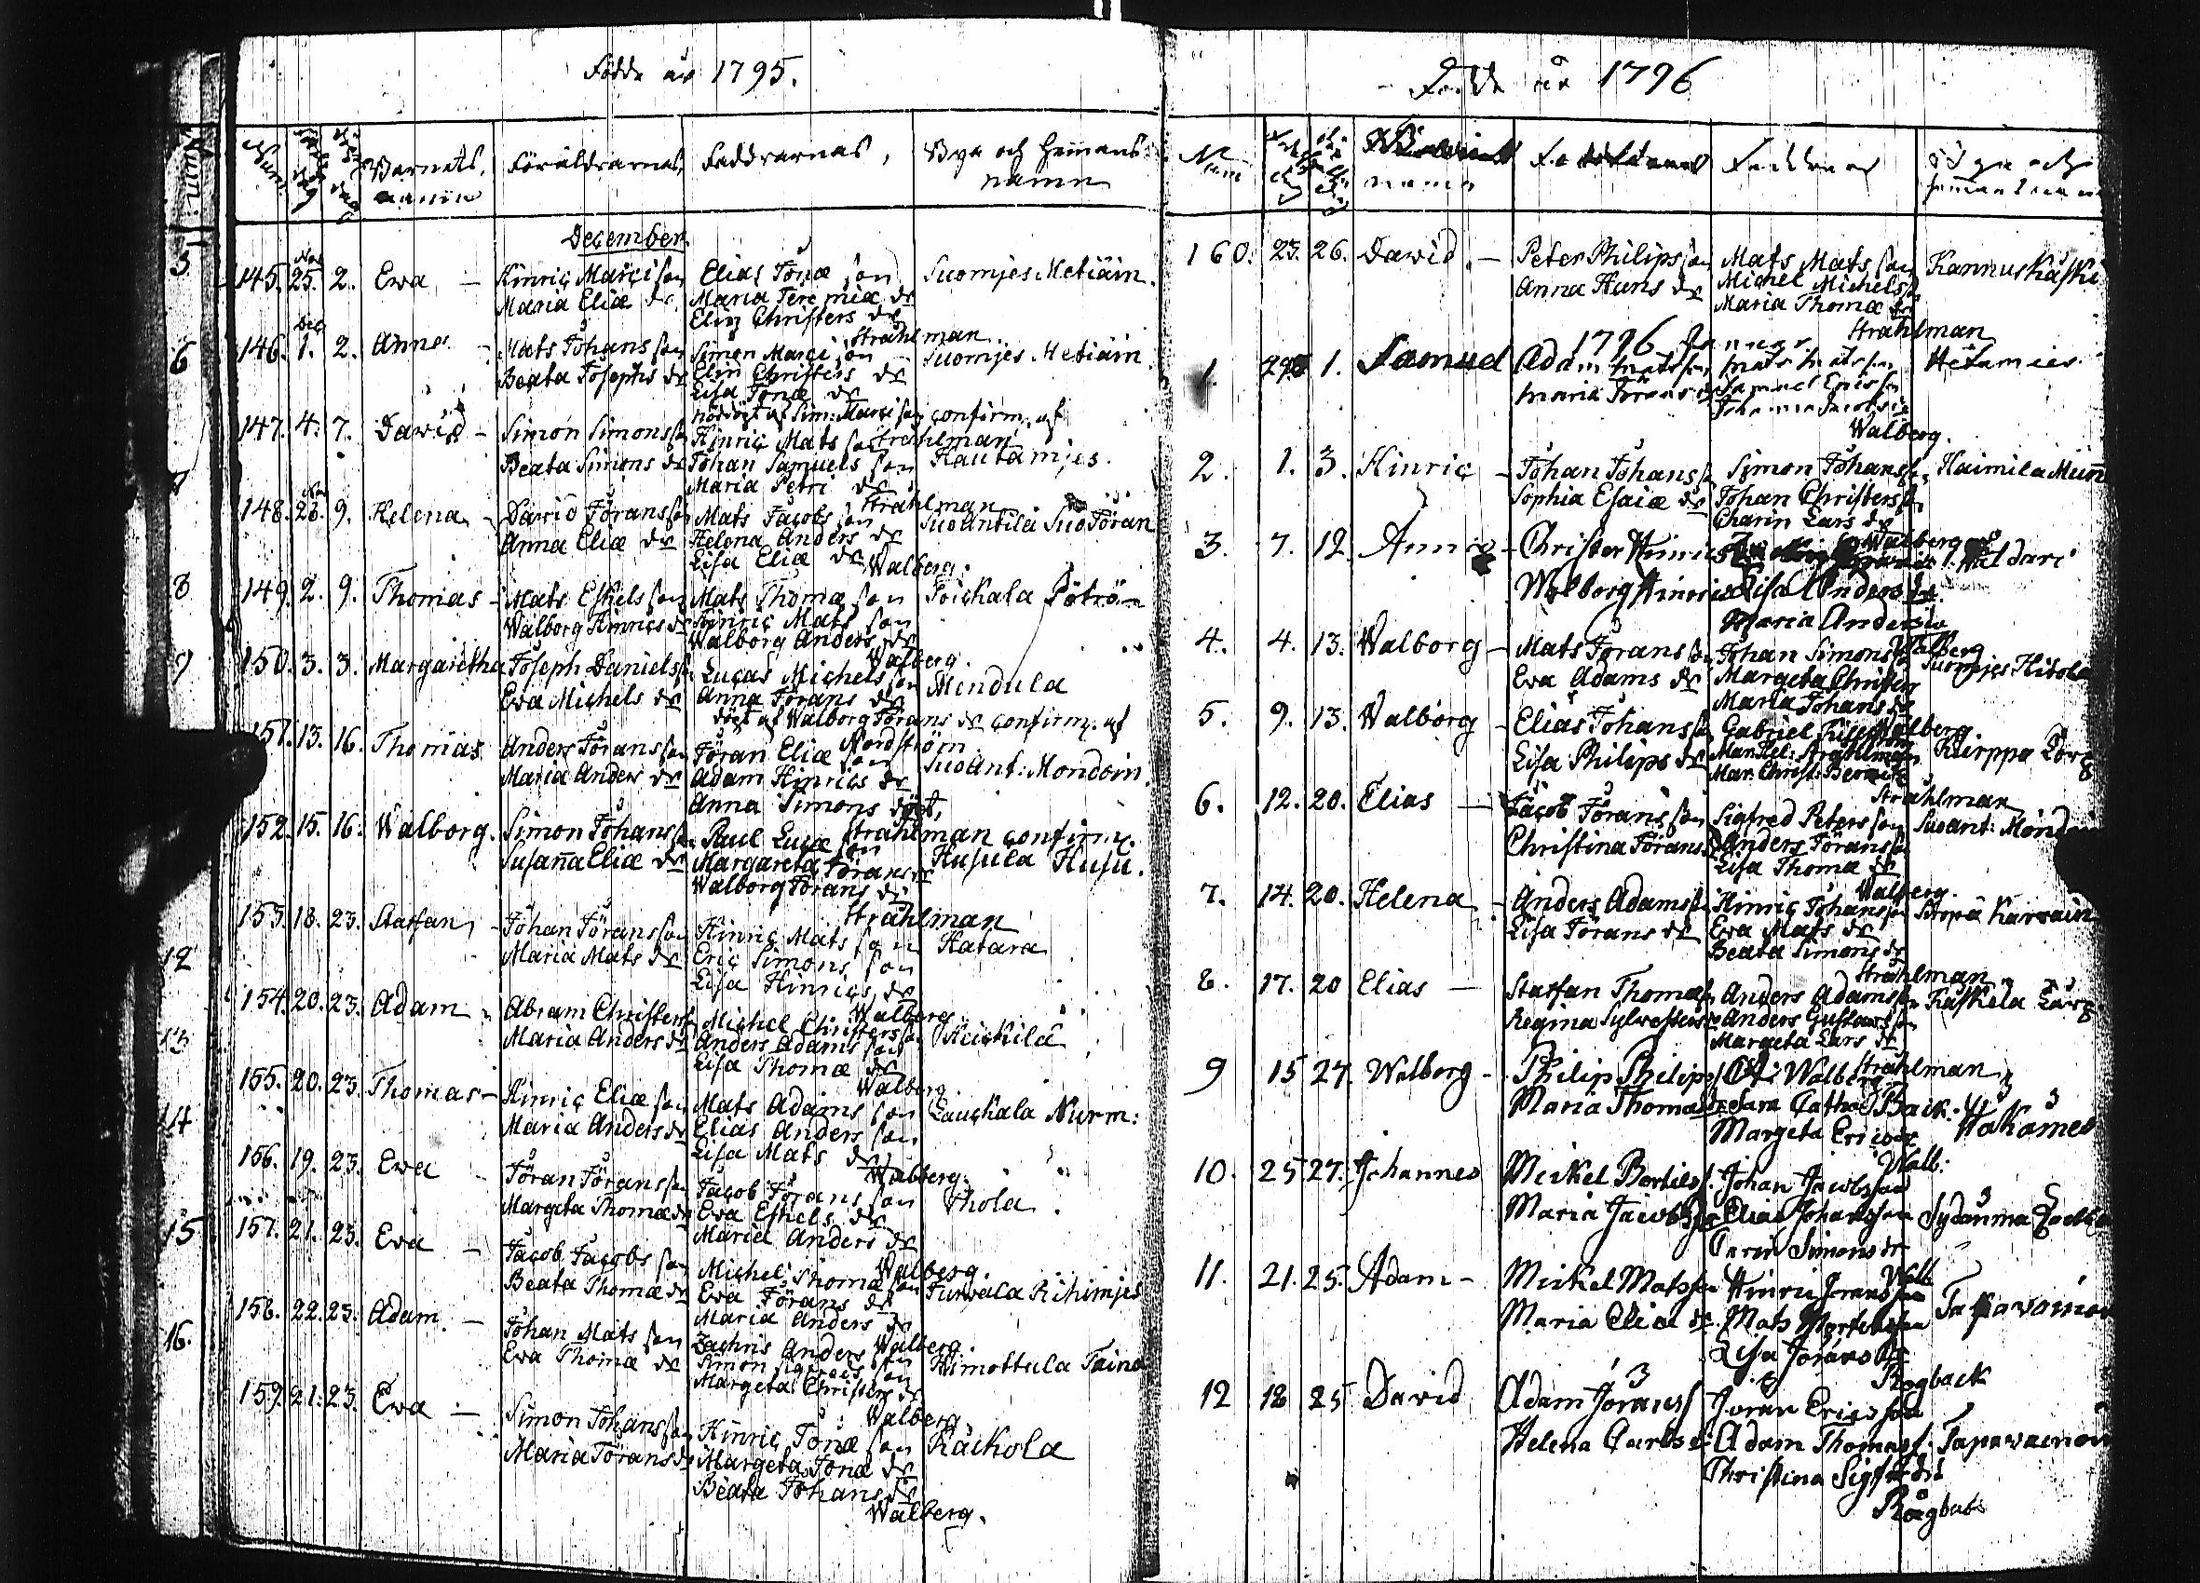 Födde år 1795.
Num: Barnets namn Föräldrarnas, Faddrarnas, Bya och Hemans namn
December
145. Nov 25. 2. Ewa — Hinric Marci son Elias Jonæ son Suomjes Metiäin.
Maria Eliæ dr Maria Jeremiæ dr
Elin Christers dr
Strahlman
146. Dec 1. 2. Anna - Mats Johans son Simon Marci son Suomjes Metiäin
Beata Josephs dr Elin Christers dr
Lisa Jonæ dr
nöddöpt af Sim: Marci son confirm. af
Strahlman
147. 4. 7. David - Simon Simons son Hinric Mats son Hautamjes.
Beata Simons dr Johan Samuels son
Maria Petri dr
Strahlman
148. Nov 28. 9. Helena - David Jörans son Mats Jacobs son Suoantila Suo Jöran
Anna Eliæ dr Helena Anders dr
Lisa Eliæ dr
Walberg.
149. 2. 9. Thomas - Mats Eskels son Mats Thomæ son
Walborg Hinrics dr Hinric Mats son
Walborg Anders dr
Walberg.
150. 3. 3. Margaretha Joseph Daniels son Lucas Michels son Mendula
Ewa Michels dr Anna Jörans dr
döpt af Walborg Jörans dr confirm. af
Nordström
151. 13. 16. Thomas Anders Jörans son Jöran Eliæ son Suoant: Mondoin.
Maria Anders dr Adam Hinrics dr
Anna Simons döpt,
Strahlman confirm.
152. 15. 16. Walborg. Simon Johans son Paul Lucæ son Husula Husu.
Susanna Eliæ dr Margareta Jörans dr
Walborg Jörans dr
Strahlman
153. 18. 23. Staffan - Johan Jörans son Hinric Mats son Hatara
Maria Mats dr Eric Simons son
Lisa Hinrics dr
Walberg
154. 20. 23. Adam - Abram Christers son Michel Christers son
Maria Anders dr Anders Adams son
Lisa Thomæ dr
Walberg
155. 20. 23. Thomas - Hinric Eliæ son Mats Adams son Lauckala Nurm:
Maria Anders dr Elias Anders son
Lisa Mats dr
Walberg.
156. 19. 23. Ewa - Jöran Jörans son Jacob Jörans son Ihola.
Margeta Thomæ dr Ewa Eskels dr
Maria Anders dr
Walberg
157. 21. 23. Ewa — Jacob Jacobs son Michel Thomæ son Turvala Rihimjes
Beata Thomæ dr Ewa Jörans dr
Maria Anders dr
Walberg.
158. 22. 23. Adam. — Johan Mats son Zachris Anders son Himottula Taina
Ewa Thomæ dr Simon
Margeta Christers dr
Walberg.
159. 21. 23. Ewa — Simon Johans son Hinric Jonæ son Räickola
Maria Jörans dr Margeta Jonæ dr
Beata Johans dr
Walberg.
Födde år 1796
160. 23. 26. David. — Peter Philips son Mats Mats son Kannuskaski
Anna Hans dr Michel Michels son
Maria Thomæ dr
Strahlman
1796
1. 1. Samuel Adam Matsson Mats Matsson Hetamies
Maria Jörans dr Samuel Ericsson
Walberg.
2. 1. 3. Hinric - Johan Johans son Simon Johans son Haimila Mun
Sophia Esaiæ dr Johan Christers son
Charin Lars dr
Walberg
3. 7. 12. Anna - Christer Hinrics
Walborg Hinrics Lisa Anders dr
Maria Anders dr
Walberg
4. 4. 13. Walborg - Mats Jörans son Johan Simons son Suomjes
Ewa Adams dr Margeta Christers
Maria Johans dr
Walberg
5. 9. 13. Walborg - Elias Johans son Gabriel
Lisa Philips dr Mar. Hel: Strahlman
Mar. Christ:
Strahlman
6. 12. 20. Elias — Jacob Jörans son Sigfred Peters son Suoant: Mondoin
Christina Jörans dr Anders Jörans son
Lisa Thomæ dr
Walberg.
7. 14. 20. Helena - Anders Adams son Hinric Johans son
Lisa Jörans dr Ewa Mats dr
Beata Simons dr
Strahlman
8. 17. 20 Elias — Staffan Thomæ son Anders Adams son
Regina Sylvesters dr Anders Gustavs son
Margeta Lars dr
Strahlman
9 15 27. Walborg - Philip Philips Walberg
Maria Thomas dr Sara Cath:
Margeta Erics dr
Walb:
10. 25 27. Johannes Meikel Bertils. Johan Jacobsson
Maria Jacobs dr Elias Johansson
Carin Simons dr
Walb
11. 21. 25. Adam - Meikel Matsson Hinric Jöransson
Maria Eliæ dr. Mats
Lisa Jörans dr
Rogback
12 18 25 David Adam Jörans Jöran Ericsson
Helena Carls dr Adam Thomass.
Christina Sigfrids